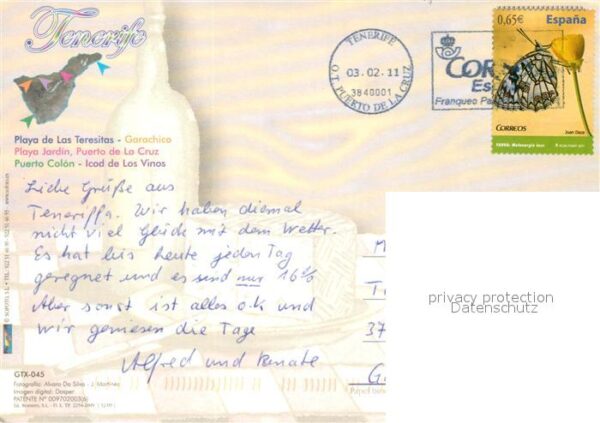 Tenerife
Playa de Las Teresitas - Garachico
Playa Jardín, Puerto de La Cruz
Puerto Colón - Icod de Los Vinos
Liebe Grüße aus
Teneriffa. Wir haben diemal
nicht viel Glück mit dem Wetter.
Es hat bis heute jeden Tag
geregnet und es sind nur 16°
Aber sonst ist alles o.k und
wir geniesen die Tage
Alfred und Renate
GTX-045
Fotografía: Alvaro Da Silva - J. Martínez
Imagen digital: Dosper
PATENTE Nº 009702003(6)
TENERIFE
03.02.11
3840001
O.T. PUERTO DE LA CRUZ
Franqueo
0,65€ España
CORREOS
37
privacy protection
Datenschutz